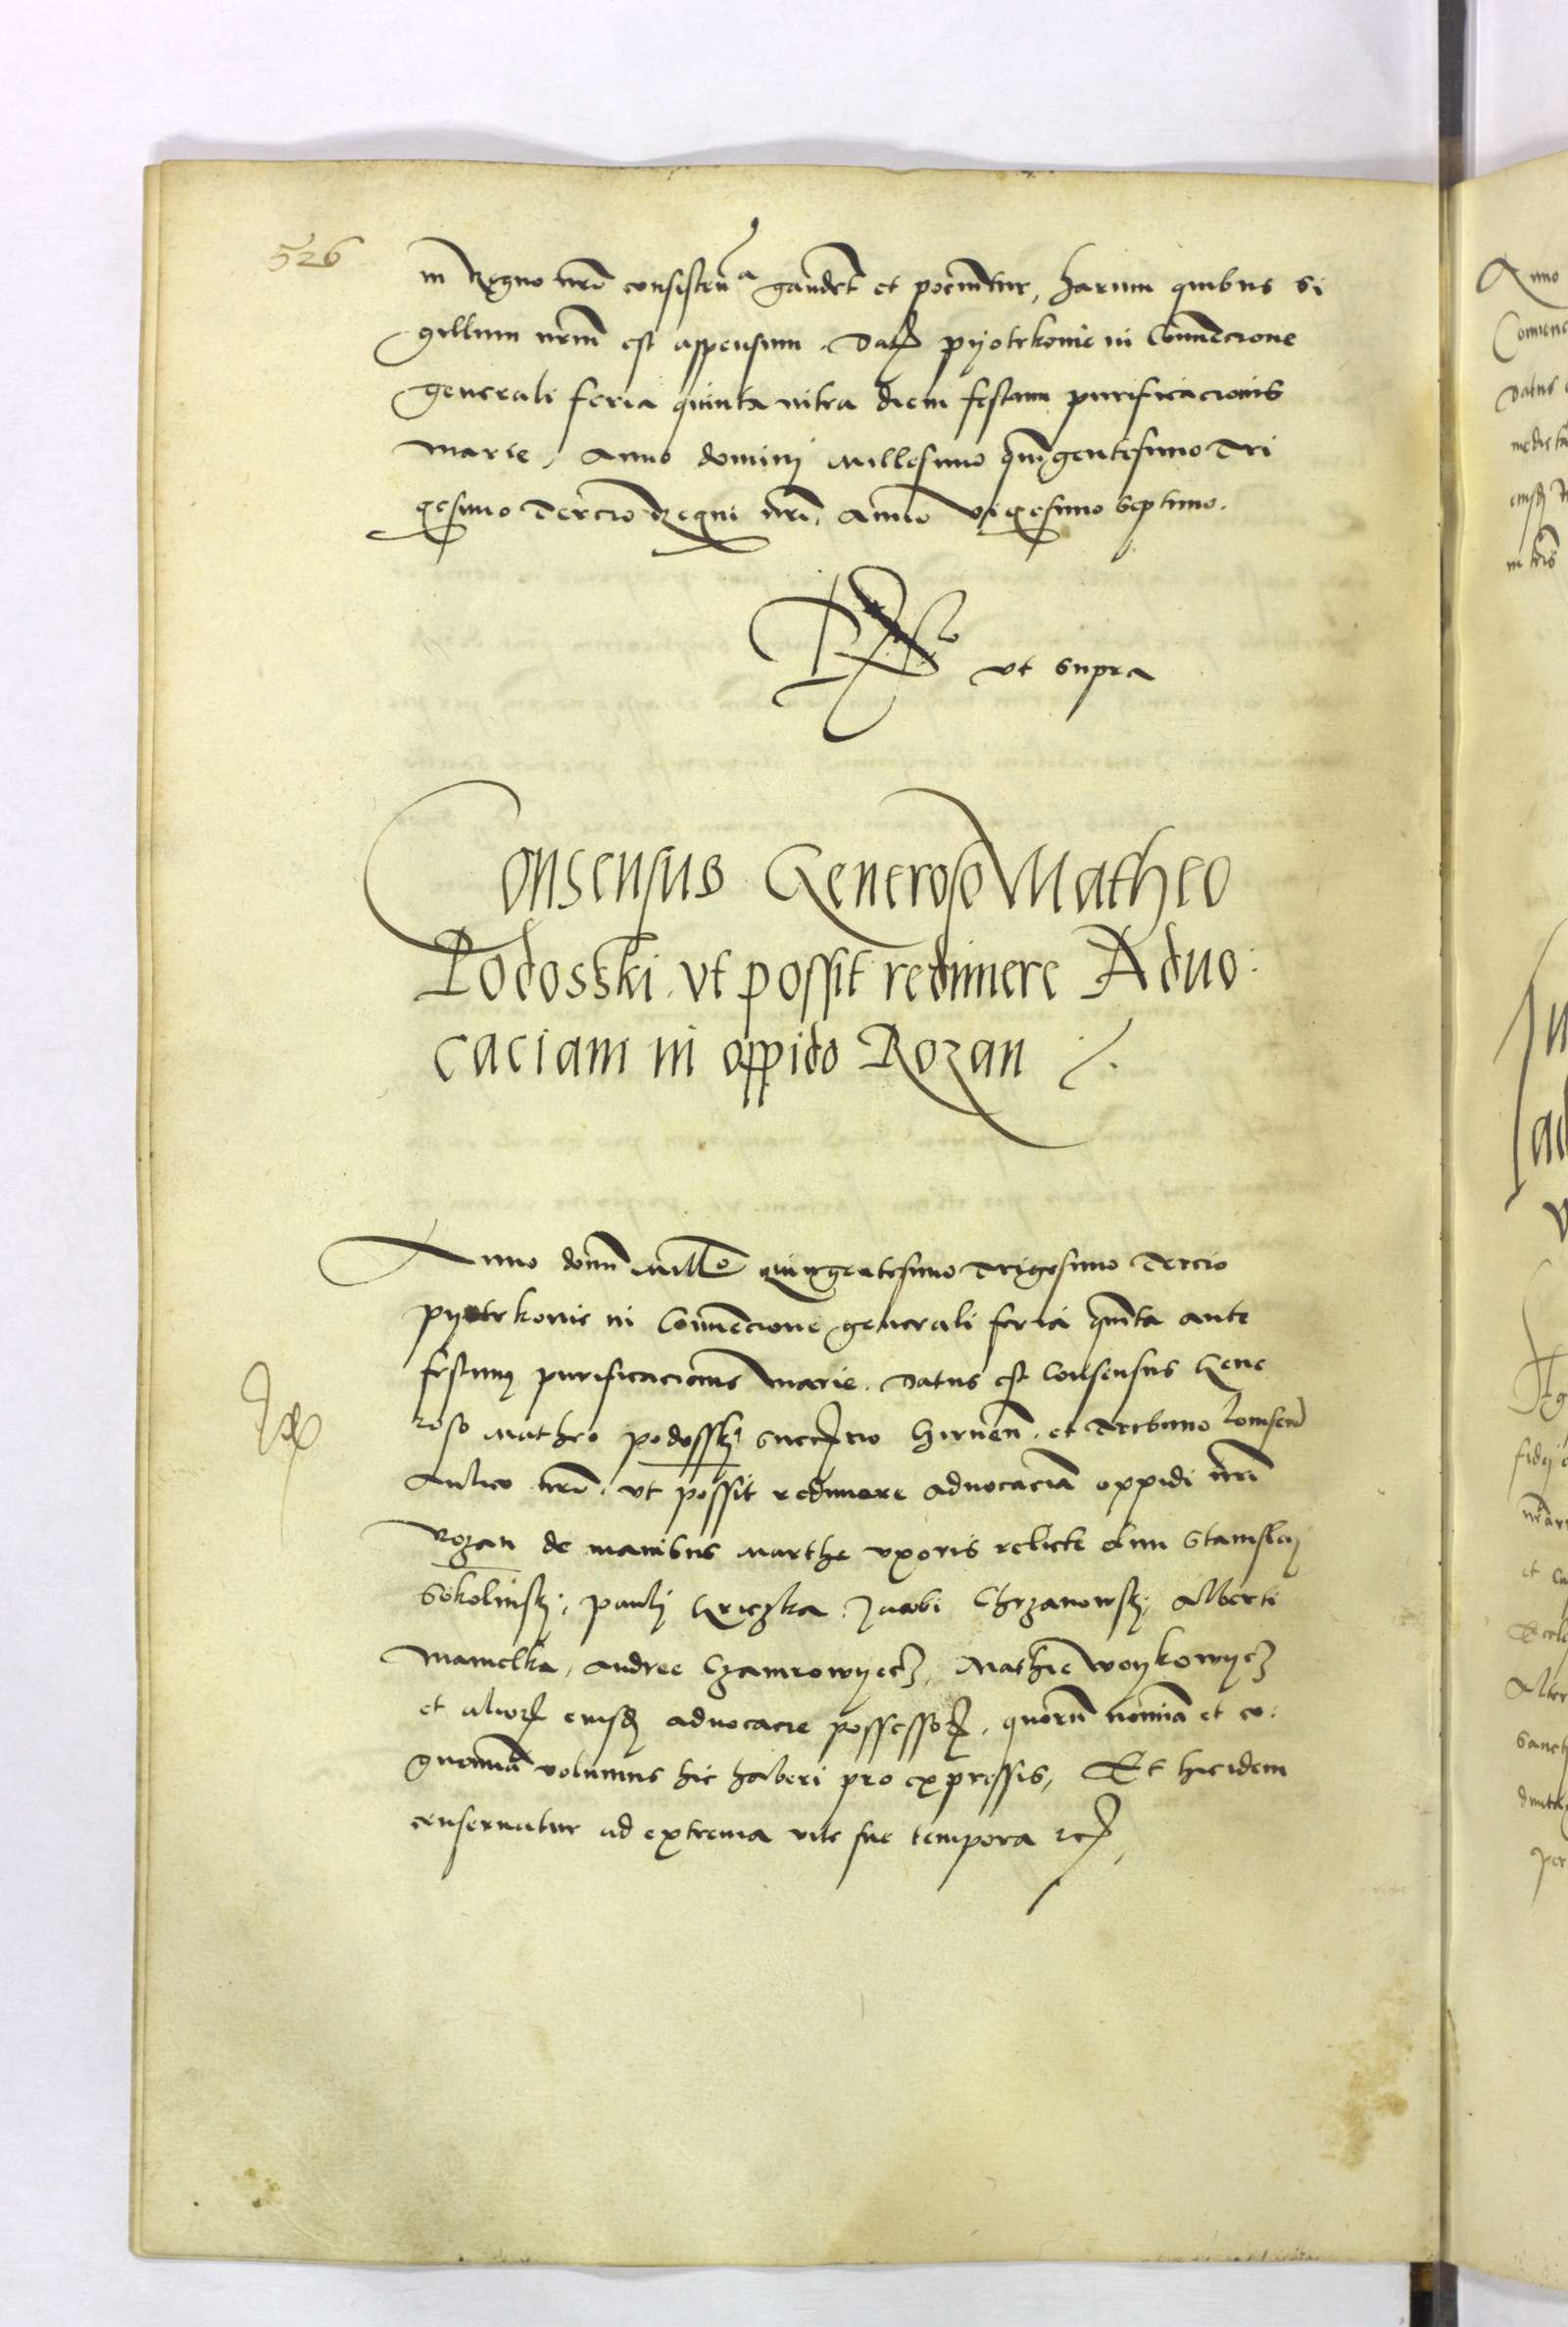 526
in Regno nrō consistenᵃ gaudet et pocinntur, harum quibus si
gillum nrm est appensum. Dat pyotrkowie in Conuencione
generali feria quinta infra diem festum purificacionis
Marie, Anno dominj Millesimo quingentesimo Tri
gesimo Tercio Regni nrī, Anno vigesimo septimo.
vt supra
Consensus Generoso Matheo
Podosski vt possit redimere Aduo:
caciam in oppido Rozan
Anno domī Mill̄o quingentesimo Trigesimo Tercio
pyotrkowie in Conuēcione generali feria quīta ante
festum purificacionis Marie. Datus est Consensus Gene
roso Matheo podosskj et Tribuno lomsen̄
Aulico nrō. vt possit redimere aduocaciā oppidi nrī
Rozan de manibus Marthe vxoris relicte olim Stanislaj
Sokolinskj, paulj Kriczka Jacobi Chrzanowskj Alberti
Mamelka, Andree Czamrowyecz, Mathie woykowycz
et alior eiusd aduocacie possessor, quorū nomīa et co:
gnomīa volumus hic haberi pro expressis, Et hic idem
conseruatur ad extrema vite sue tempora etc
Anno
Datus